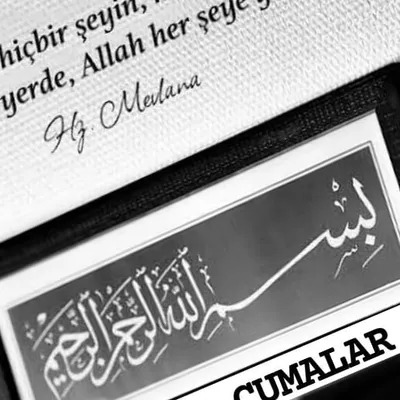 hiçbir şeyin,
yerde, Allah her şeye
Hz. Mevlana
بسم الله الرحمن الرحيم
CUMALAR